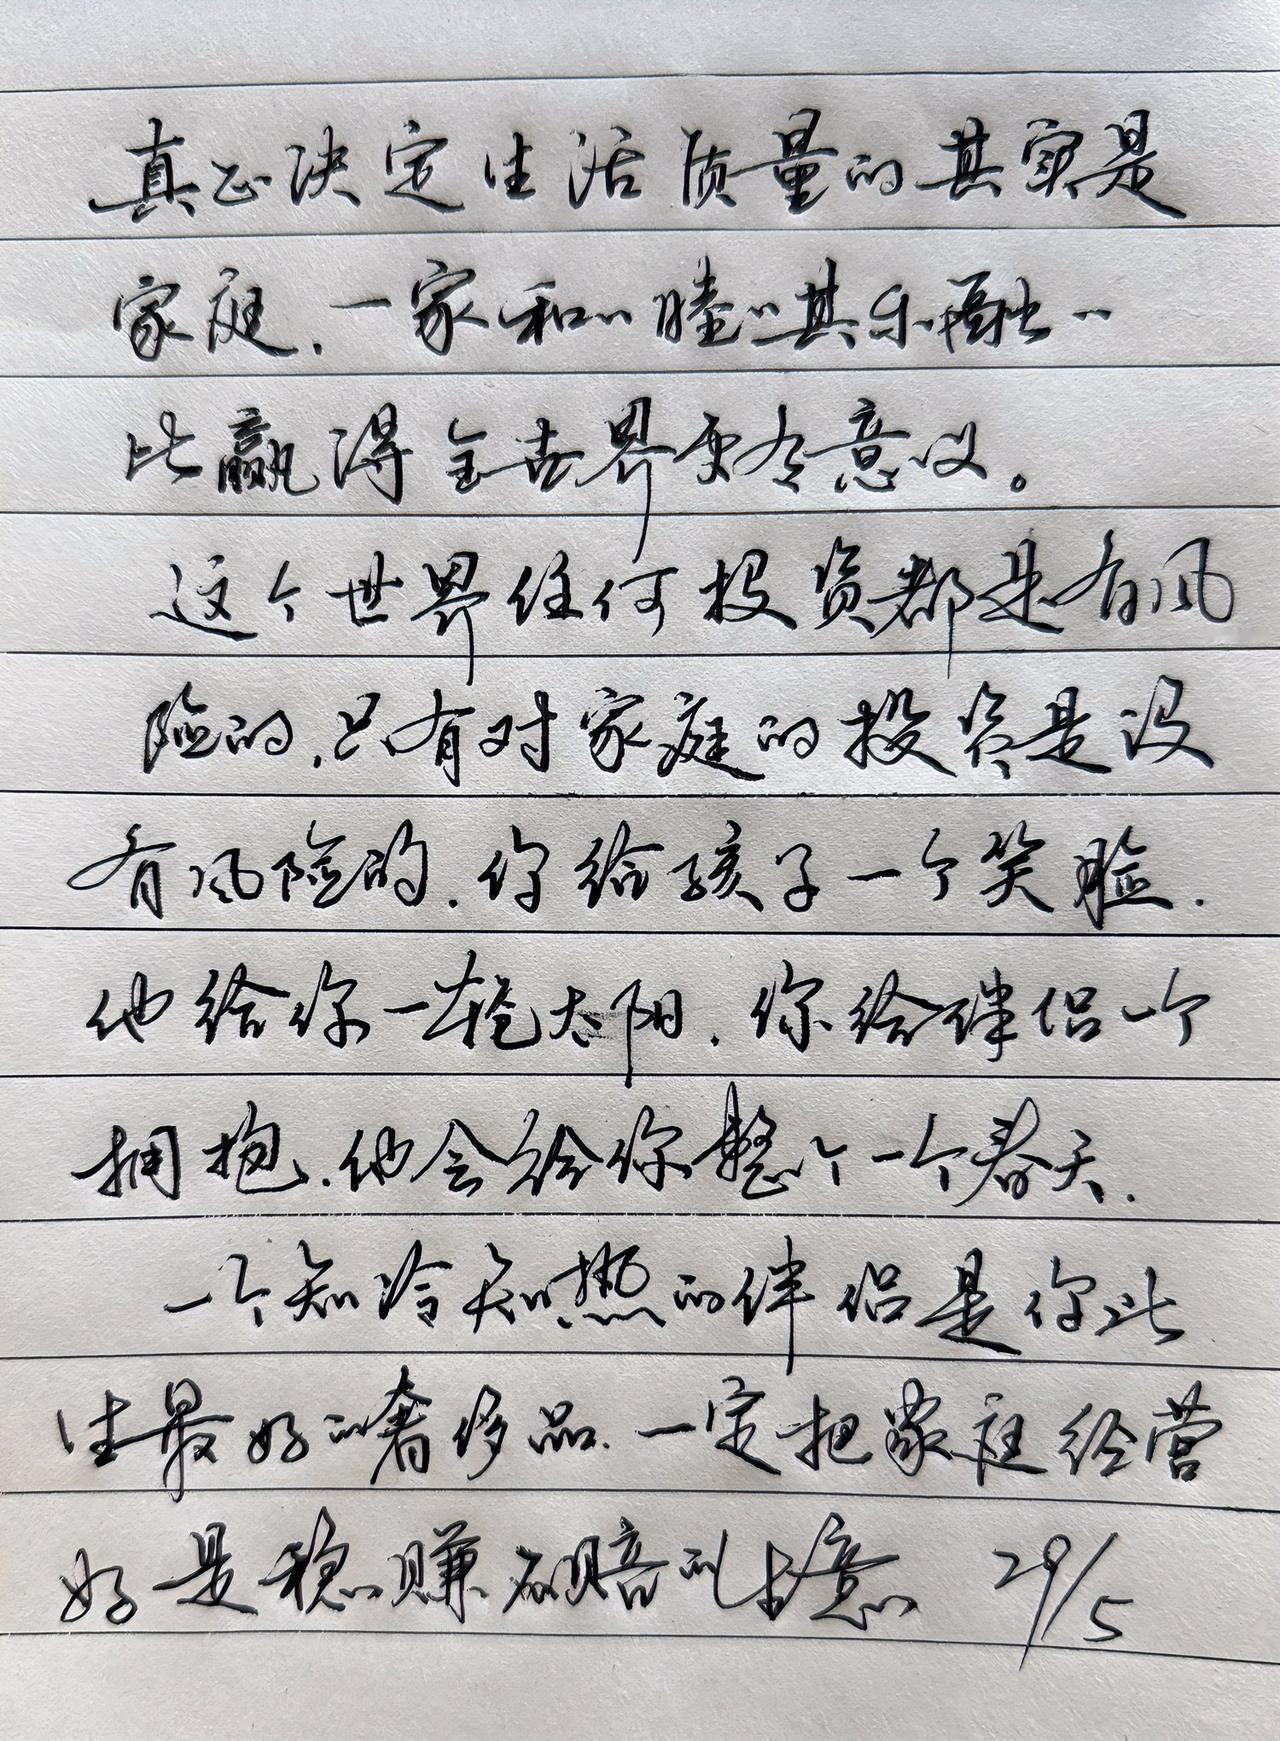 真正决定生活质量的其实是
家庭.一家和〃睦〃其乐融〃
比赢得全世界更有意义。
这个世界任何投资都是有风
险的.只有对家庭的投资是没
有风险的.你给孩子一个笑脸.
他给你一轮太阳.你给伴侣一个
拥抱.他会给你整个一个春天.
一个知冷知热的伴侣是你此
生最好的奢侈品.一定把家庭经营
好是稳赚不赔的生意 29/5